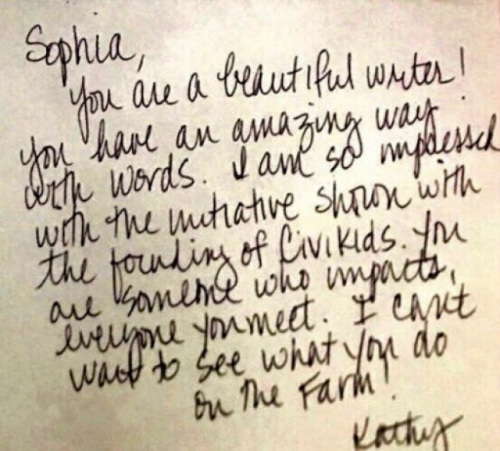 Sophia,
You are a beautiful writer!
You have an amazing way
with words. I am so impressed
with the initiative shown with
the founding of CiviKids. You
are someone who impacts,
everyone you meet. I can't
wait to see what you do
on the Farm!
Kathy